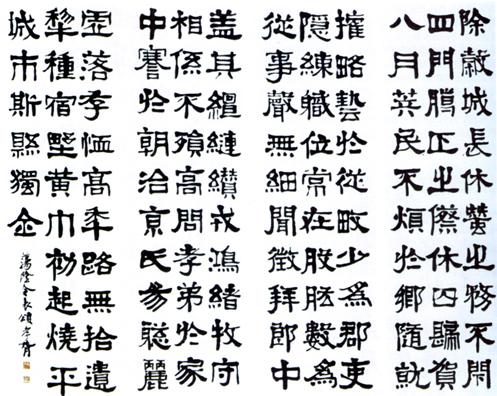 除穀城長休蠶之務不閉
四門臈正之僚休囚歸賀
八月英民不煩於鄉隨就
權略藝於從畋少為郡吏
隱練職位常在股肱數為
從事聲無細聞徵拜郎中
蓋其繵縺纘戎鴻緒牧守
相係不殞高問孝弟於家
中謇於朝治京氏易聰麗
虛落存恤高年路無拾遺
犁種宿野黃巾初起燒平
城市斯縣獨全
蕩陰令表頌